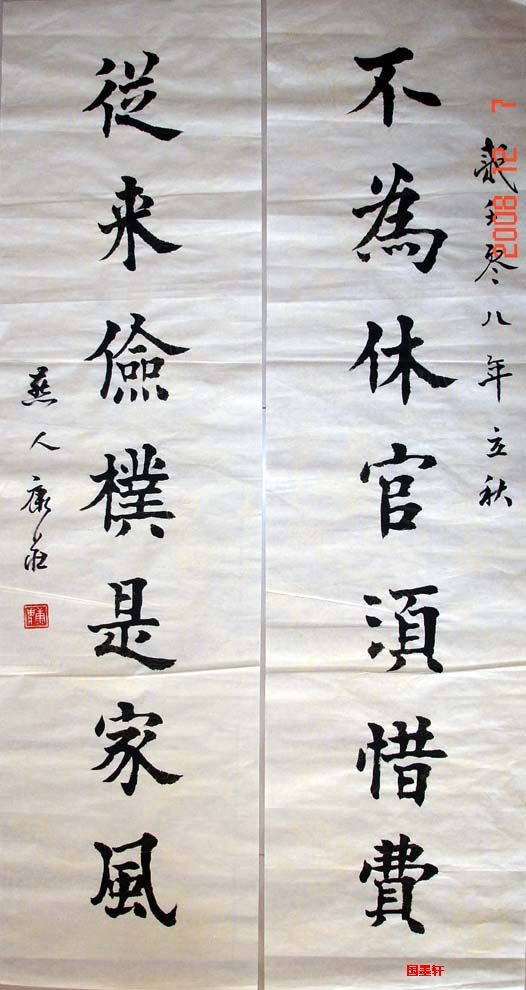 零八年立秋
不為休官湏惜費
従来儉樸是家風
燕人康莊
2008 12 7
国墨轩